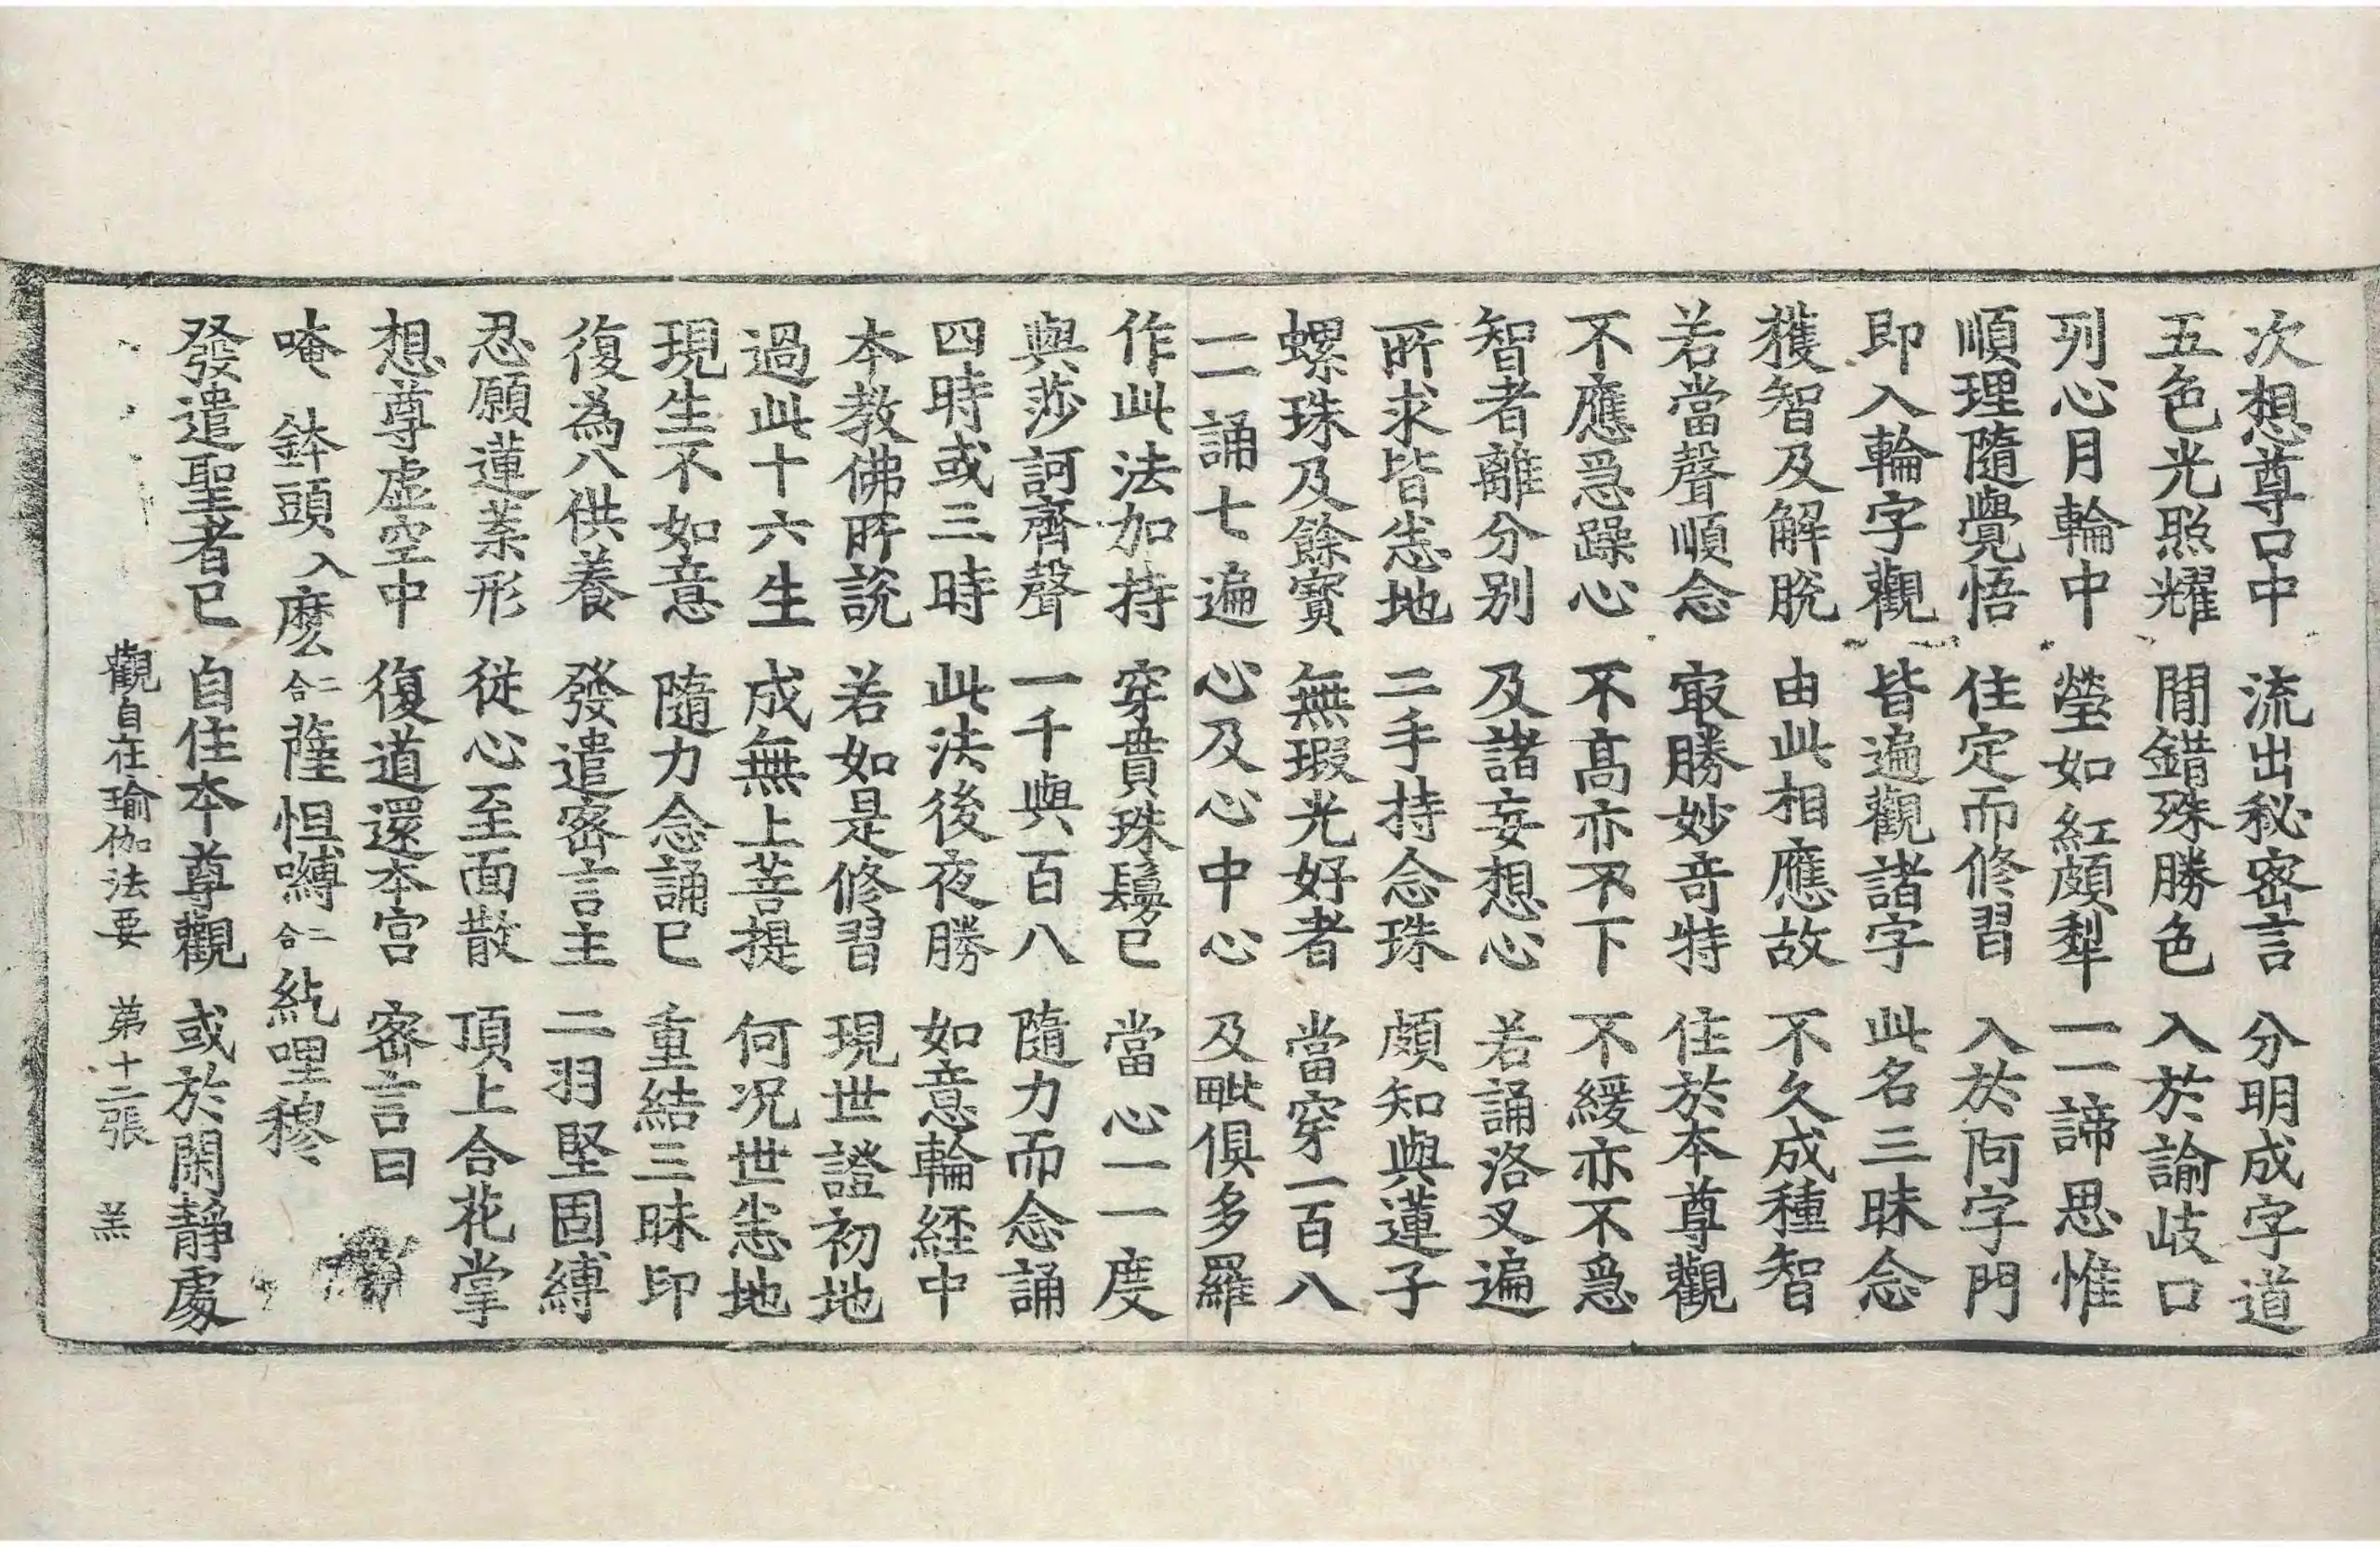 次想尊口中 流出秘密言 分明成字道
五色光照耀 間錯殊勝色 入於諭岐口
列心月輪中 瑩如紅頗犁 一一諦思惟
順理隨覺悟 住定而修習 入於阿字門
即入輪字觀 皆遍觀諸字 此名三昧念
獲智及解脫 由此相應故 不久成種智
若當聲順念 㝡勝妙竒特 住於本尊觀
不應急躁心 不髙亦不下 不緩亦不急
智者離分别 及諸妄想心 若誦洛叉遍
所求皆悉地 二手持念珠 頗知與蓮子
螺珠及餘寶 無瑕光好者 當穿一百八
一一誦七遍 心及心中心 及毗俱多羅
作此法加持 穿貫珠鬘已 當心一一度
與莎訶齊聲 一千與百八 隨力而念誦
四時或三時 此法後夜勝 如意輪経中
本教佛所說 若如是修習 現世證初地
過此十六生 成無上菩提 何况世悉地
現生不如意 隨力念誦已 重結三昧印
復為八供養 發遣密言主 二羽堅固縛
忍願蓮葉形 從心至面散 頂上合花掌
想尊虛空中 復道還本宫 密言曰
唵 鉢頭入麽二合薩怛嚩二合紇哩穆
發遣聖者已 自住本尊觀 或於閑靜處
觀自在瑜伽法要 第十二張 羔